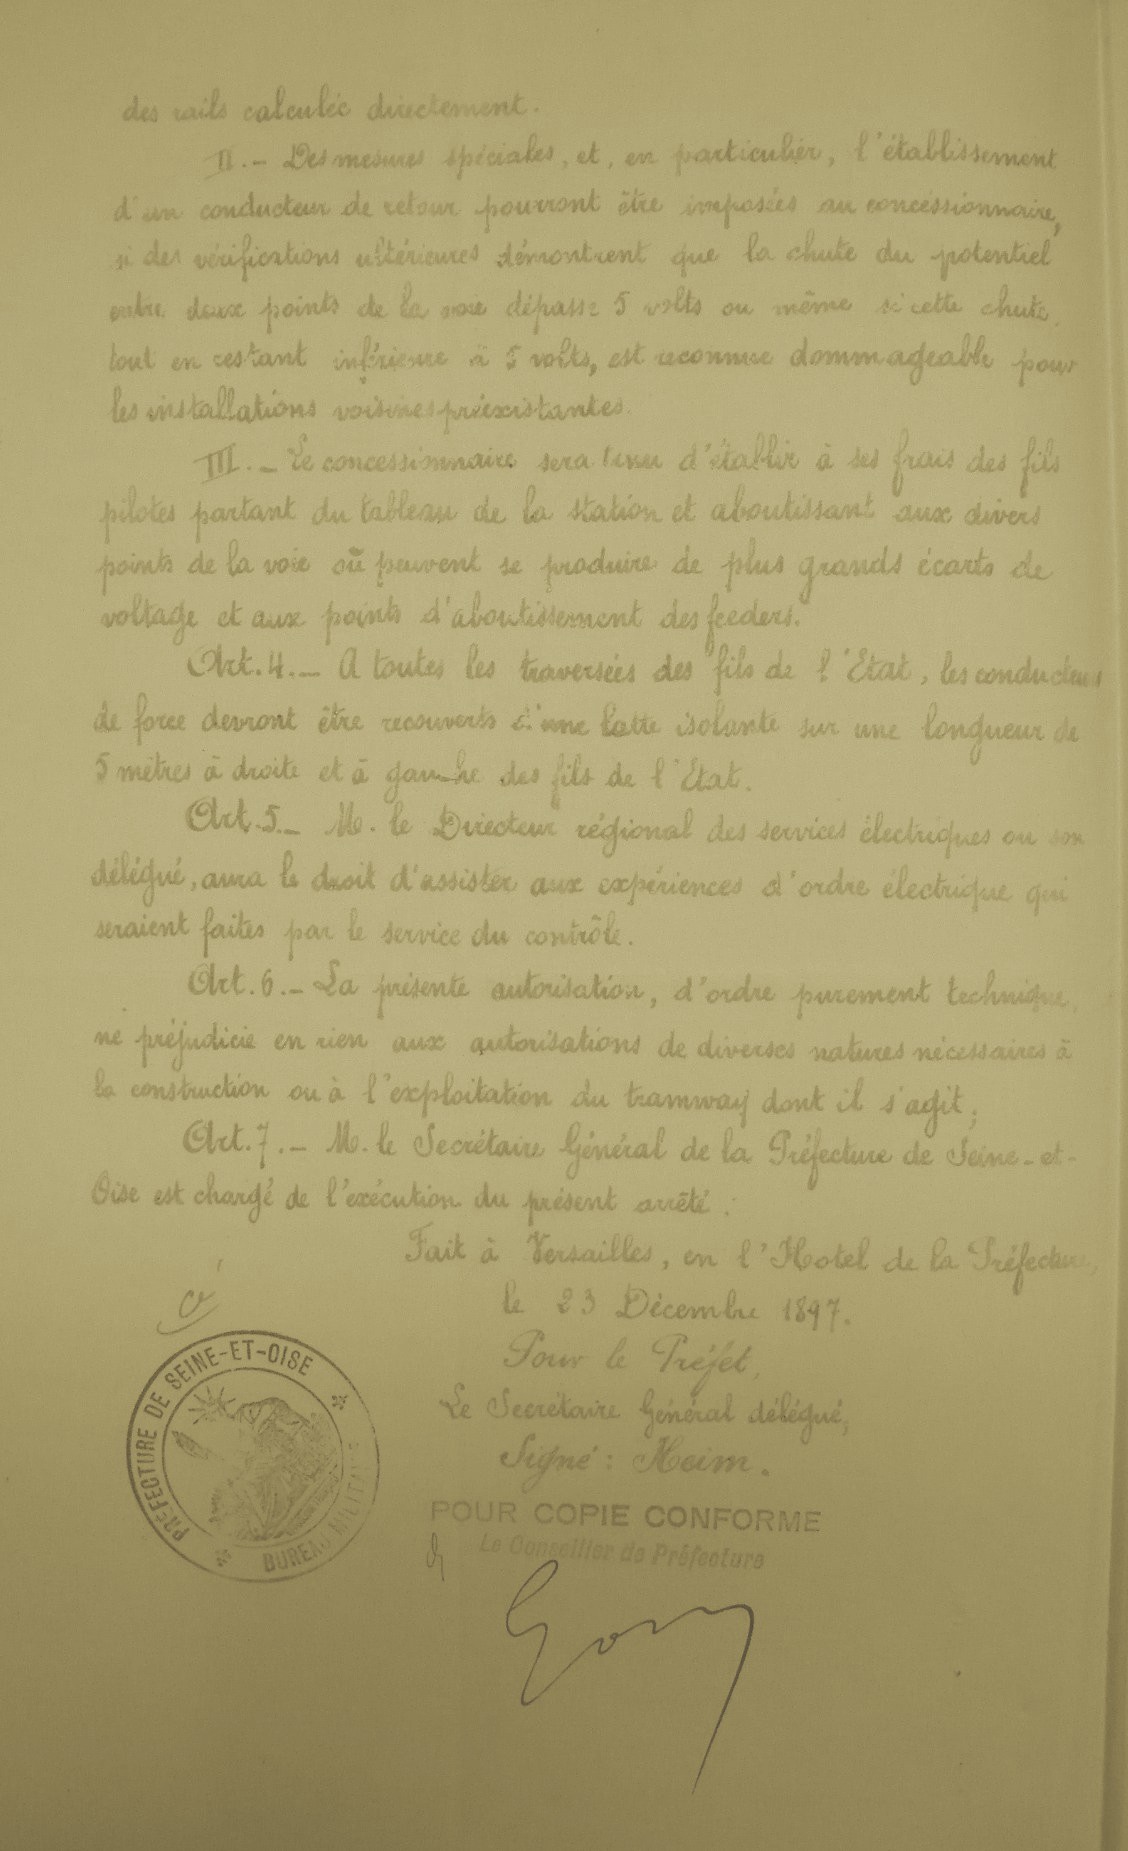 des rails calculée directement.
II. — Des mesures spéciales, et, en particulier, l'établissement
d'un conducteur de retour pourront être imposées au concessionnaire,
si des vérifications ultérieures démontrent que la chute du potentiel
entre deux points de la voie dépasse 5 volts ou même si cette chute,
tout en restant inférieure à 5 volts, est reconnue dommageable pour
les installations voisines préexistantes.
III. — Le concessionnaire sera tenu d'établir à ses frais des fils
pilotes partant du tableau de la station et aboutissant aux divers
points de la voie où peuvent se produire de plus grands écarts de
voltage et aux points d'aboutissement des feeders.
Art. 4. — A toutes les traversées des fils de l'Etat, les conducteurs
de force devront être recouverts d'une latte isolante sur une longueur de
5 mètres à droite et à gauche des fils de l'Etat.
Art. 5. — M. le Directeur régional des services électriques ou son
délégué, aura le droit d'assister aux expériences d'ordre électrique qui
seraient faites par le service du contrôle.
Art. 6. — La présente autorisation, d'ordre purement technique,
ne préjudicie en rien aux autorisations de diverses natures nécessaires à
la construction ou à l'exploitation du tramway dont il s'agit;
Art. 7. — M. le Secrétaire Général de la Préfecture de Seine-et-
Oise est chargé de l'exécution du présent arrêté.
Fait à Versailles, en l'Hotel de la Préfecture,
le 23 Décembre 1897.
Pour le Préfet,
Le Secrétaire Général délégué,
Signé : Heim.
PRÉFECTURE DE SEINE-ET-OISE
BUREAU MILITAIRE
POUR COPIE CONFORME
Le Conseiller de Préfecture